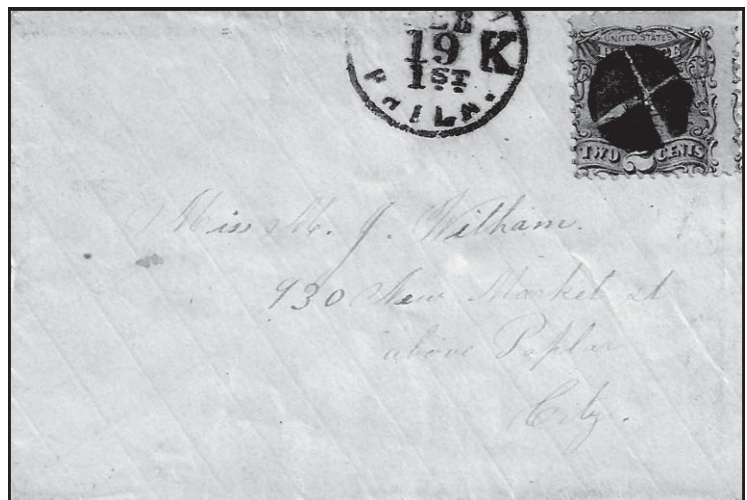 19 K
1ST
PHILA.
UNITED STATES
TWO 2 CENTS
Miss M. J. Witham.
930 New Market st
above Poplar
City.